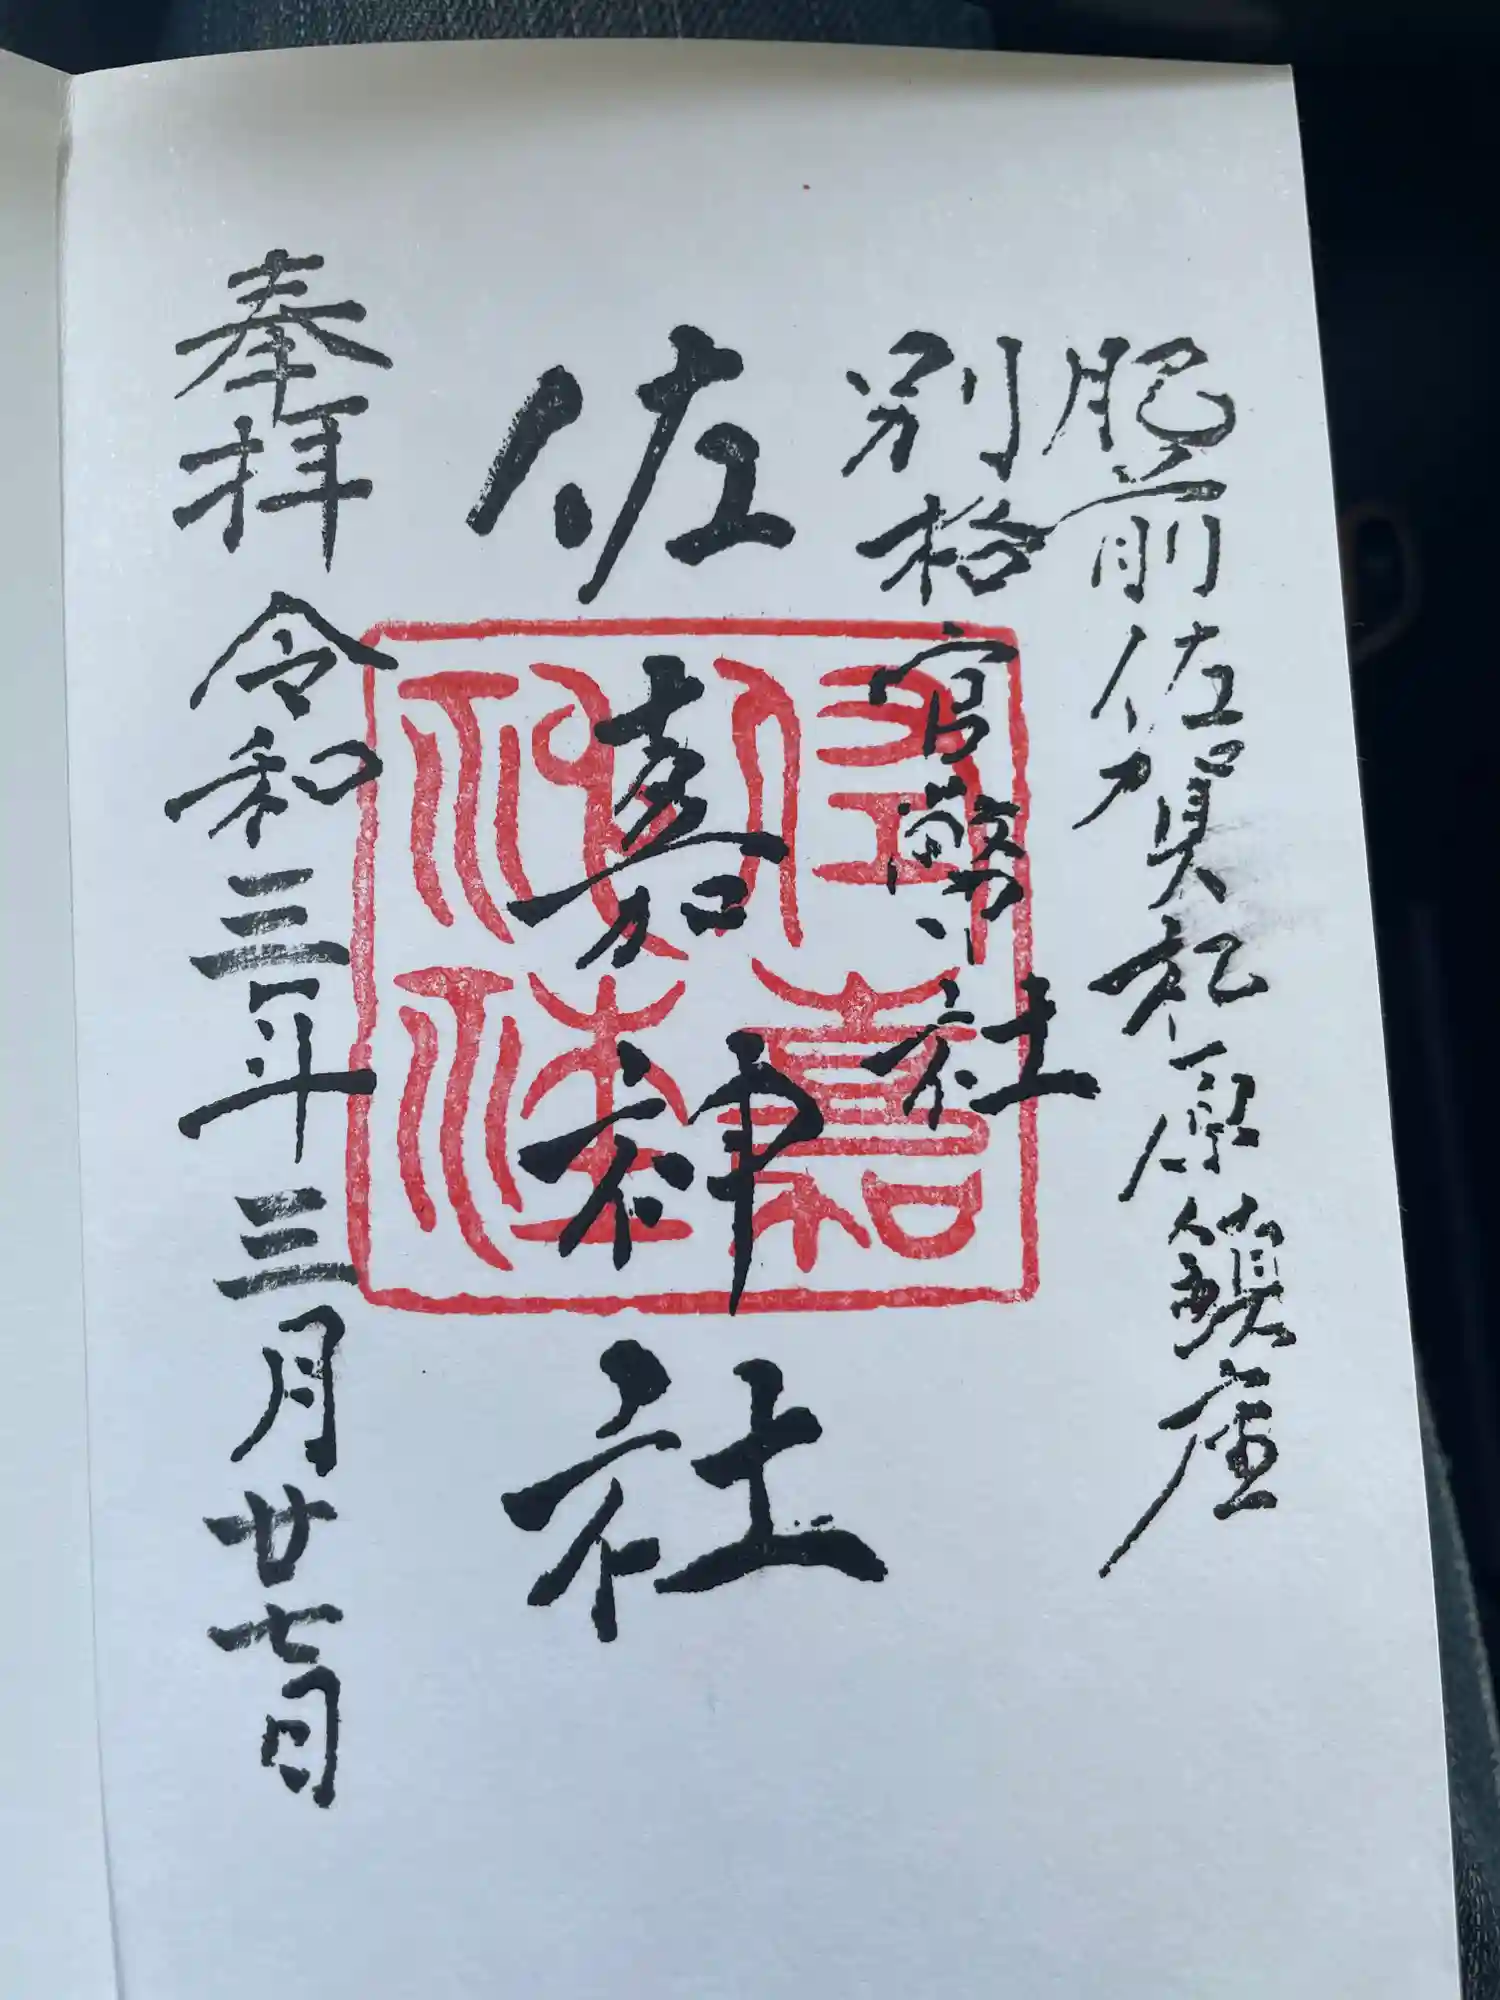 肥前佐賀松原鎮座
別格官幣小社
佐嘉神社
佐嘉神社
奉拝 令和三年三月廿七日